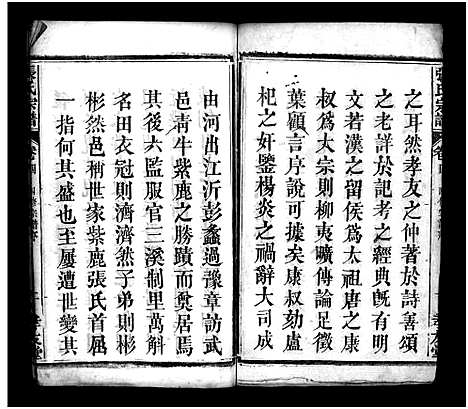 張氏宗譜
之耳然孝友之仲著於詩善頌
之老詳於記考之經典既有明
文若漢之留侯為太祖唐之康
叔為大宗則柳夷曠傳論扶疎
葉顧言不可據矣康叔劾盧
杞之奸鑒楊炎之禍辭大司成
由河出江沂彭蠡過豫章訪武
邑青牛紫鹿之勝蹟而奠居焉
其後六監服官三溪制里萬畝
名田衣冠則濟濟然子弟則彬
彬然邑稱世家紫鹿張氏首屈
一指何其盛也至屢遭世變其
張氏宗譜
卷四